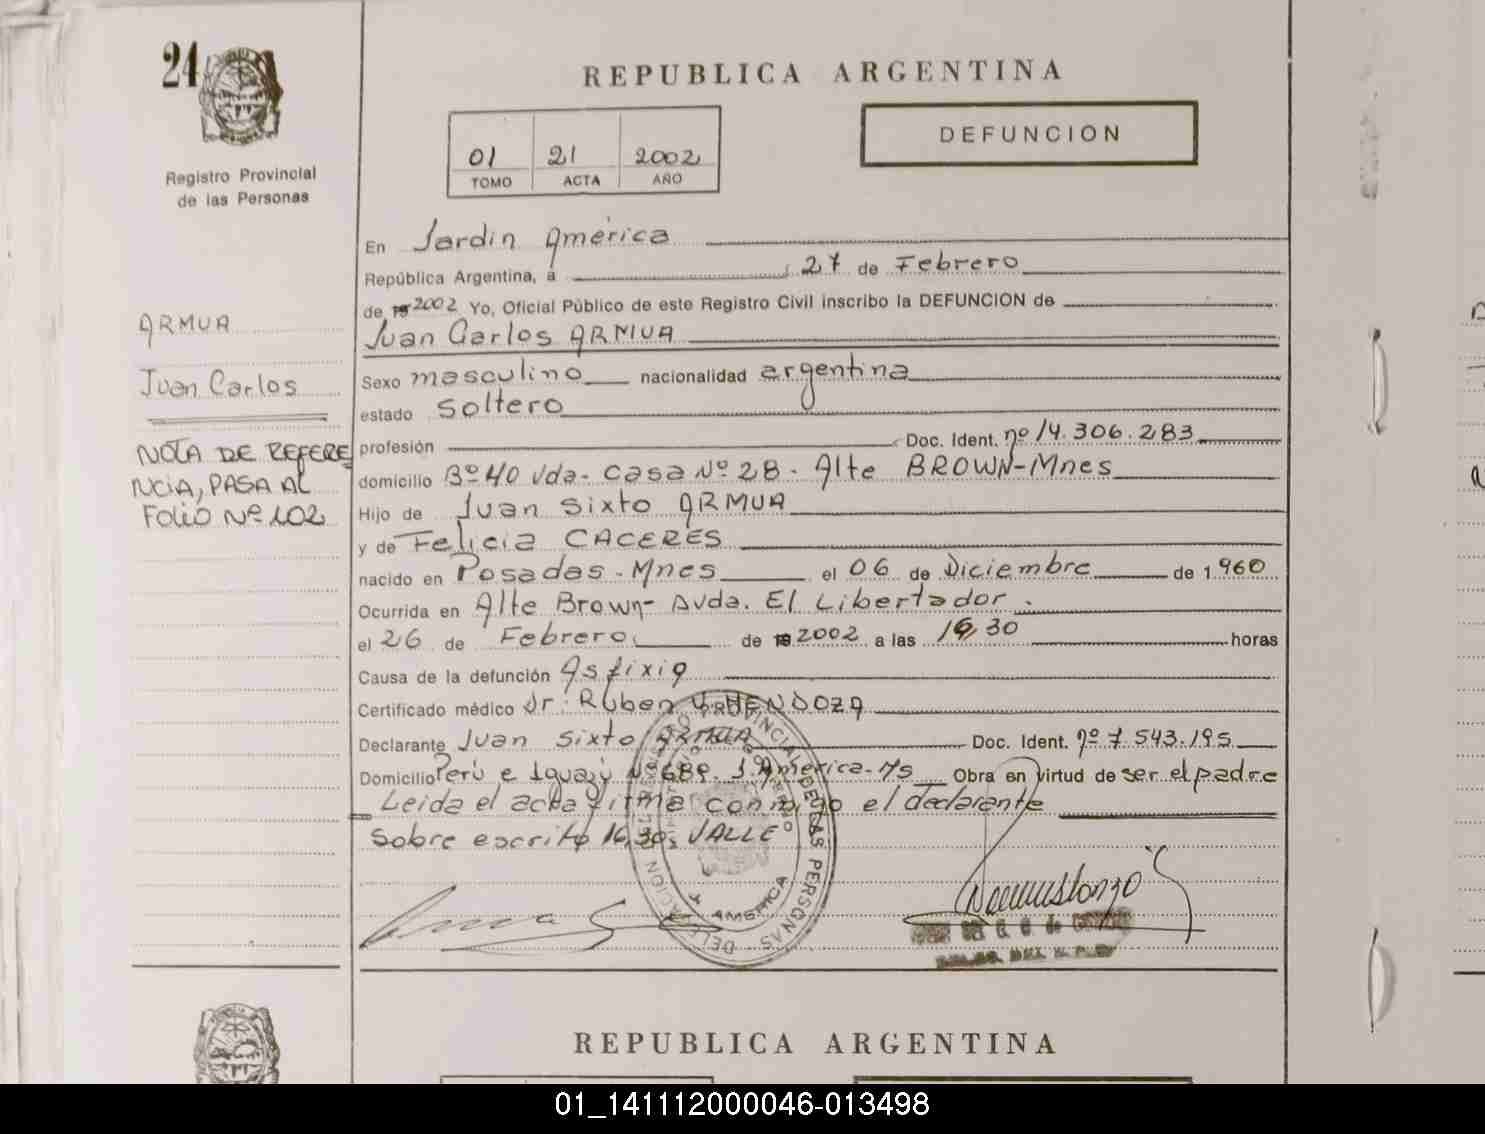 24
REPUBLICA ARGENTINA
DEFUNCION
01 21 2002
TOMO ACTA AÑO
Registro Provincial
de las Personas
En Jardin América
República Argentina, a 27 de Febrero
de 19 2002 Yo, Oficial Público de este Registro Civil inscribo la DEFUNCION de
Juan Carlos ARMUA
ARMUA
Juan Carlos
NOTA DE REFERE
NCIA, PASA AL
FOLIO Nº 102
Sexo masculino nacionalidad argentina
estado Soltero
profesión Doc. Ident. nº 14.306.283
domicilio Bº 40 Vda- Casa Nº 28- Alte BROWN-Mnes
Hijo de Juan Sixto ARMUA
y de Felicia CACERES
nacido en Posadas-Mnes el 06 de Diciembre de 1.960
Ocurrida en Alte Brown- Avda. El Libertador.
el 26 de Febrero de 19 2002 a las 16,30 horas
Causa de la defunción Asfixia
Certificado médico Dr. Ruben MENDOZA
Declarante Juan Sixto ARMUA Doc. Ident. nº 7.543.195
Domicilio Perú e Iguazú Nº 689. J. América-Ms Obra en virtud de ser el padre
Leida el acta firma conmigo el declarante
Sobre escrito 16,30, VALLE
PROVINCIAL DE LAS PERSONAS
AMERICA
REPUBLICA ARGENTINA
01_141112000046-013498